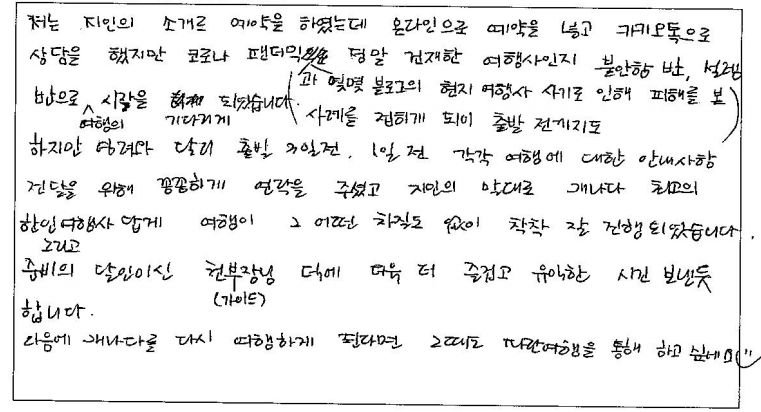 저는 지인의 소개로 예약을 하였는데 온라인으로 예약을 넣고 카카오톡으로
상담을 했지만 코로나 팬더믹으로 정말 건재한 여행사인지 불안함 반, 설렘
(과 몇몇 블로그의 현지 여행사 사기로 인해 피해를 본
반으로 시작을 되었습니다.
여행의 기다리게
사례를 접하게 되어 출발 전까지도)
하지만 염려와 달리 출발 2일전, 1일 전 각각 여행에 대한 안내사항
전달을 위해 꼼꼼하게 연락을 주셨고 지인의 말대로 캐나다 최고의
한인여행사 답게 여행이 그 어떤 차질도 없이 착착 잘 진행되었습니다.
그리고
준비의 달인이신 천부장님 덕에 더욱 더 즐겁고 유익한 시간 보낸듯
(가이드)
합니다.
다음에 캐나다를 다시 여행하게 된다면 그때도 파란여행을 통해 하고 싶네요